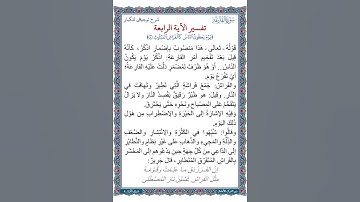 سُورَةُ القَارِعَةِ
شرح توضيحي للكبار
تفسير الآية الرابعة
﴿يَوْمَ يَكُونُ النَّاسُ كَالْفَرَاشِ الْمَبْثُوثِ ﴾
قَوْلُهُ - تَعَالَى - هَذَا مَنْصُوبٌ بِإِضْمَارِ اذْكُرْ، كَأَنَّهُ
قِيلَ بَعْدَ تَفْخِيمِ أَمْرِ القَارِعَةِ: اذْكُرْ يَوْمَ يَكُونُ
النَّاسُ... أَوْ هُوَ ظَرْفٌ لِمُضْمَرٍ دَلَّتْ عَلَيْهِ القَارِعَةُ؛
أَيْ تَقْرَعُ يَوْمَ.
والفَرَاشُ: جَمْعُ فَرَاشَةٍ الَّتِي تَطِيرُ وَتَهَافَتُ فِي
النَّارِ، وَقِيلَ: هُوَ طَيْرٌ رَقِيقٌ يَقْصِدُ النَّارَ وَلَا يَزَالُ
يَتَقَحَّمُ عَلَى المِصْبَاحِ وَنَحْوِهِ حَتَّى يَحْتَرِقَ.
وَفِيهِ الإِشَارَةُ إِلَى الحَيْرَةِ وَالاضْطِرَابِ مِنْ هَوْلِ
ذَلِكَ اليَوْمِ.
وَقَالُوا: شُبِّهُوا فِي الكَثْرَةِ وَالِانْتِشَارِ وَالضَّعْفِ
وَالذِّلَّةِ وَالمَجِيءِ وَالذَّهَابِ عَلَى غَيْرِ نِظَامٍ وَالتَّطَايُرِ
إِلَى الدَّاعِي مِنْ كُلِّ جِهَةٍ حِينَ يَدْعُوهُمْ إِلَى المَحْشَرِ
بِالفَرَاشِ المُتَفَرِّقِ المُتَطَايِرِ، قَالَ جَرِيرٌ:
إِنَّ الفَرَزْدَقَ مَا عَلِمْتَ وَقَوْمَهُ
مِثْلُ الفَرَاشِ غَشِينَ نَارَ المُصْطَلِي